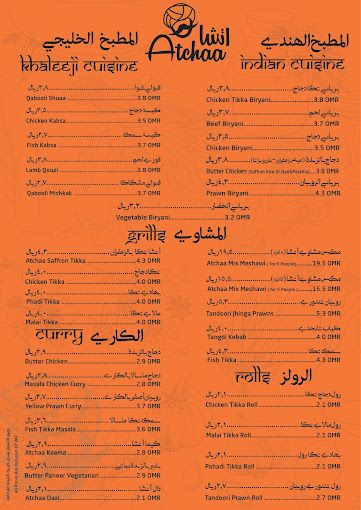 اتشا
Atchaa
المطبخ الخليجي
Khaleeji Cuisine
قبولي شوا ٣,٨ ريال
Qabooli Shuaa 3.8 OMR
كبسة دجاج ٣,٥ ريال
Chicken Kabsa 3.5 OMR
كبسة سمك ٣,٧ ريال
Fish Kabsa 3.7 OMR
قوزي لحم ٣,٨ ريال
Lamb Qouzi 3.8 OMR
قبولي مشكاك ٣,٧ ريال
Qabooli Mishkak 3.7 OMR
المطبخ الهندي
Indian Cuisine
برياني تكا دجاج ٣,٨ ريال
Chicken Tikka Biryani 3.8 OMR
برياني لحم ٣,٧ ريال
Beef Biryani 3.7 OMR
برياني دجاج ٣,٥ ريال
Chicken Biryani 3.5 OMR
دجاج بالزبدة ٣,٨ ريال
Butter Chicken (Saffron Rice Or Nan&Paratha) 3.8 OMR
برياني الروبيان ٤,٣ ريال
Prawn Biryani 4.3 OMR
برياني الخضار ٣,٢ ريال
Vegetable Biryani 3.2 OMR
Grills المشاوي
أتشا تكا بالزعفران ٤,٣ ريال
Atchaa Saffron Tikka 4.3 OMR
تكا دجاج ٤,٠ ريال
Chicken Tikka 4.0 OMR
بهادي تكا ٤,٠ ريال
Phadi Tikka 4.0 OMR
مالاي تكا ٤,٠ ريال
Malai Tikka 4.0 OMR
مكس مشاوي أتشا ١٩,٥ ريال
Atchaa Mix Meshawi 19.5 OMR
مكس مشاوي أتشا ١٥,٥ ريال
Atchaa Mix Meshawi 15.5 OMR
روبيان تندوري ٥,٣ ريال
Tandoori Jhinga Prawns 5.3 OMR
كباب تانجدي ٤,٠ ريال
Tangdi Kebab 4.0 OMR
سمك تكا ٤,٣ ريال
Fish Tikka 4.3 OMR
Curry الكاري
دجاج بالزبدة ٢,٩ ريال
Butter Chicken 2.9 OMR
دجاج ماسالا بالكاري ٢,٨ ريال
Masala Chicken Curry 2.8 OMR
روبيان أصفر بالكاري ٣,٧ ريال
Yellow Prawn Curry 3.7 OMR
سمك تكا ماسالا ٣,٦ ريال
Fish Tikka Masala 3.6 OMR
كيما أتشا ٢,٩ ريال
Atchaa Keema 2.9 OMR
بانير بالزبدة نباتي ٢,٩ ريال
Butter Paneer Vegetarian 2.9 OMR
دال أتشا ٢,١ ريال
Atchaa Daal 2.1 OMR
Rolls الرولز
رول دجاج تكا ٢,١ ريال
Chicken Tikka Roll 2.1 OMR
رول مالاي تكا ٢,١ ريال
Malai Tikka Roll 2.1 OMR
بهادي تكا رول ٢,١ ريال
Pahadi Tikka Roll 2.1 OMR
رول روبيان تندوري ٢,٧ ريال
Tandoori Prawn Roll 2.7 OMR